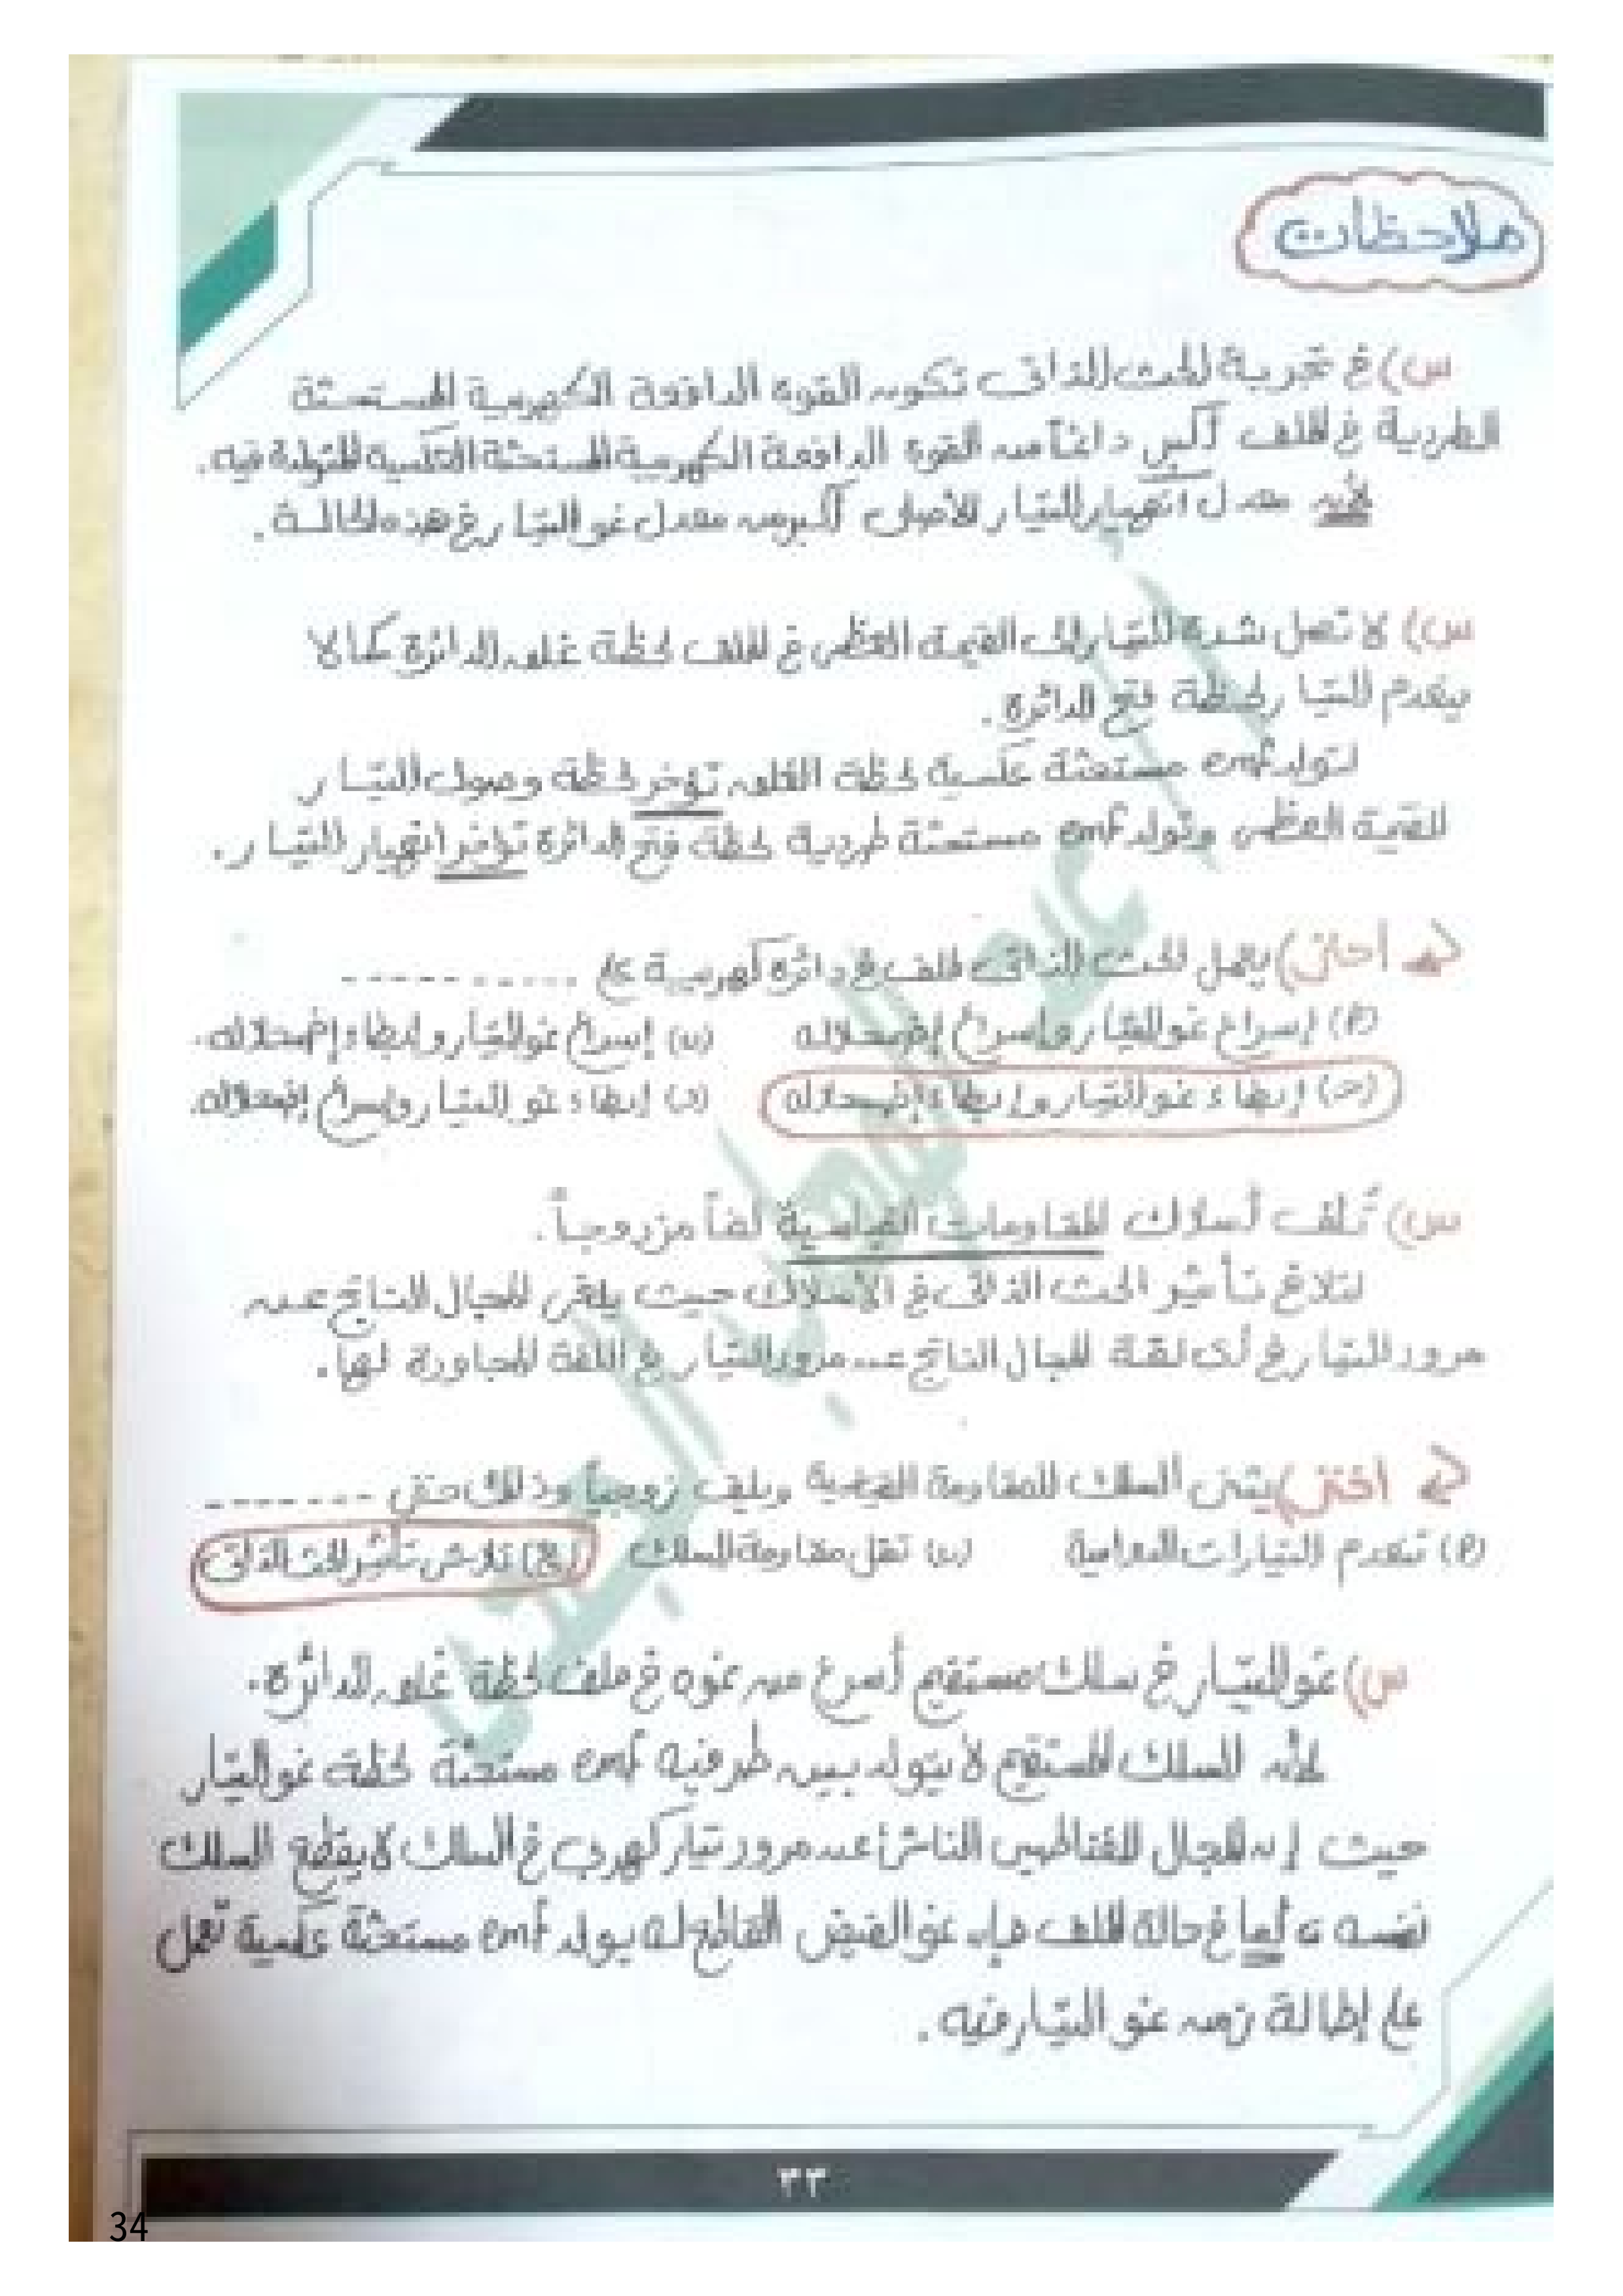 ملاحظات
س) في تجربة الحث الذاتي تكون القوة الدافعة الكهربية المستحثة
الطردية في الملف أكبر دائماً من القوة الدافعة الكهربية المستحثة العكسية المتولدة فيه.
لأن معدل انهيار التيار للأصلى أكبر من معدل نمو التيار في هذه الحالة.
س) لا تصل شدة التيار إلى القيمة العظمى في الملف لحظة غلق الدائرة كما لا
ينعدم التيار لحظة فتح الدائرة.
لتولد emf مستحثة عكسية لحظة الغلق تؤخر لحظة وصول التيار
للقيمة العظمى وتولد emf مستحثة طردية لحظة فتح الدائرة تؤخر انهيار التيار.
أختر) يعمل الحث الذاتى لملف في دائرة كهربية على ..........
(أ) إسراع نمو التيار وإسراع إضمحلاله (ب) إسراع نمو التيار وإبطاء إضمحلاله.
(ج) إبطاء نمو التيار وإبطاء إضمحلاله (د) إبطاء نمو التيار وإسراع إضمحلاله.
س) تُلف أسلاك المقاومات القياسية لفاً مزدوجاً.
لتلافي تأثير الحث الذاتى في الأسلاك حيث يلغى المجال الناتج عن
مرور التيار في أى لفة المجال الناتج عن مرور التيار في اللفة المجاورة لها.
أختر) يثنى السلك للمقاومة وبلف زوجياً وذلك حتى -------
(أ) تنعدم التيارات الدوامية (ب) تقل مقاومة السلك (ج) تلاشى تأثير الحث الذاتى
س) نمو التيار في سلك مستقيم أسرع من نموه في ملف لحظة غلق الدائرة.
لأن السلك المستقيم لا يتولد بين طرفيه emf مستحثة لحظة نمو التيار
حيث إن المجال المغناطيسى الناشئ عن مرور تيار كهربى في السلك لا يقطع السلك
نفسه، أما في حالة الملف فإن نمو الفيض القاطع له يولد emf مستحثة عكسية تعمل
على إطالة زمن نمو التيار فيه.
٣٣
34